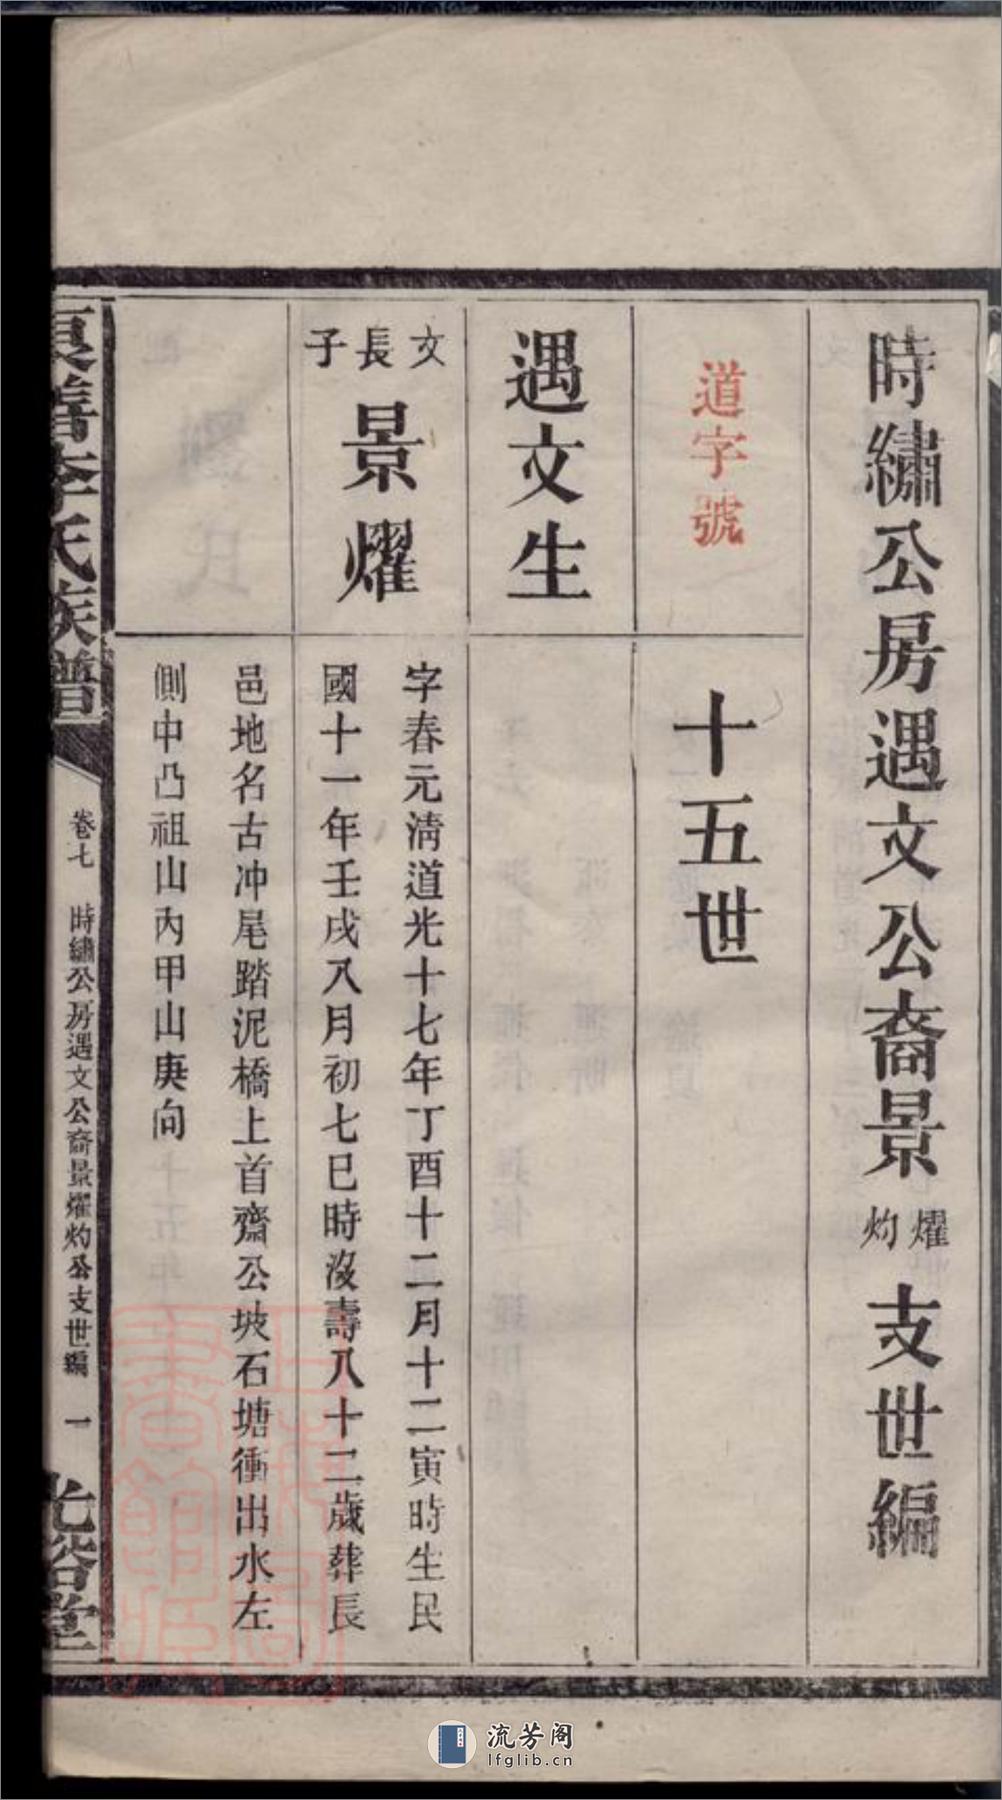 時繡公房遇文公裔景燿灼支世編
道字號
十五世
遇文生
文長子
景燿
字春元淸道光十七年丁酉十二月十二寅時生民
國十一年壬戌八月初七巳時沒壽八十二歲葬長
邑地名古冲尾踏泥橋上首齋公坡石塘衝出水左
側中凸祖山內甲山庚向
李氏族譜
卷七 時繡公房遇文公裔景燿灼公支世編 一
堂
流芳阁
lfglib.cn